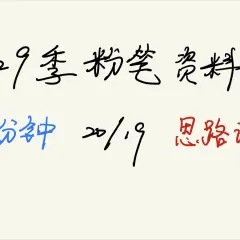 29季粉笔资料
分钟 20/19 思路